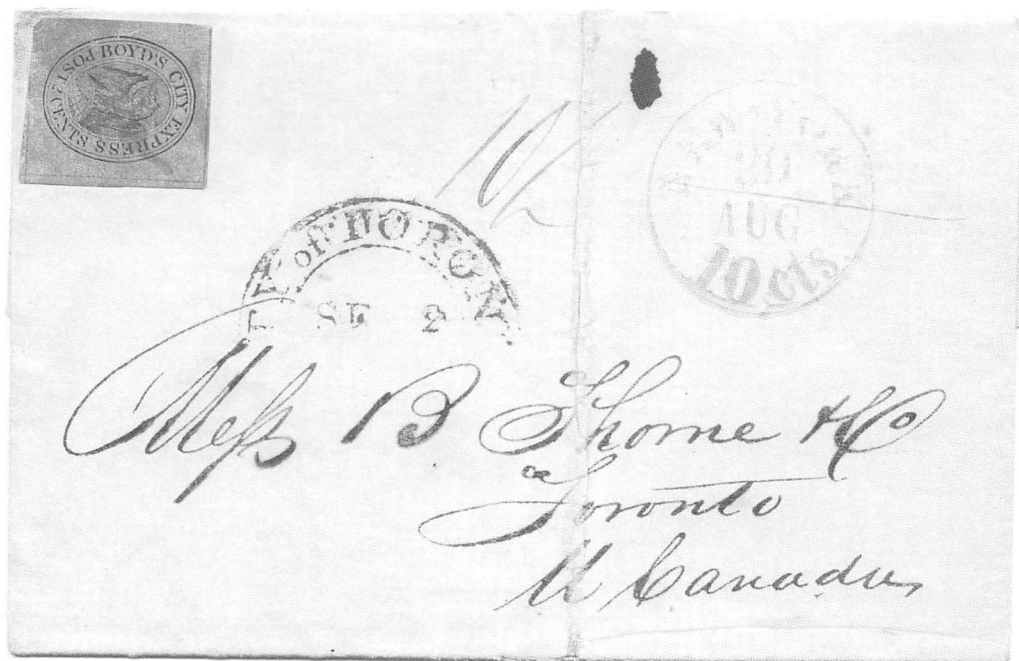 BOYD'S CITY EXPRESS POST
2 CENTS
NEW-YORK
AUG
10 cts.
TY of TORON
SE 2
Mess B Thorne & Co
Toronto
U Canada